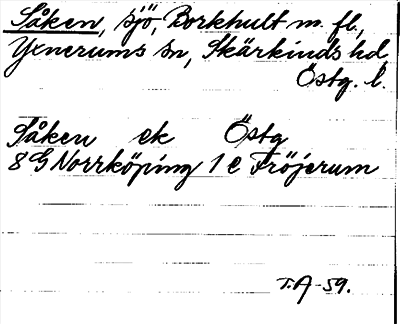 Såken, sjö, Borkhult m. fl.,
Yxnerums sn, Skärkinds hd,
Östg. l.
Såken ek Östg
8 G Norrköping 1 e Fröjerum
T.A-59.